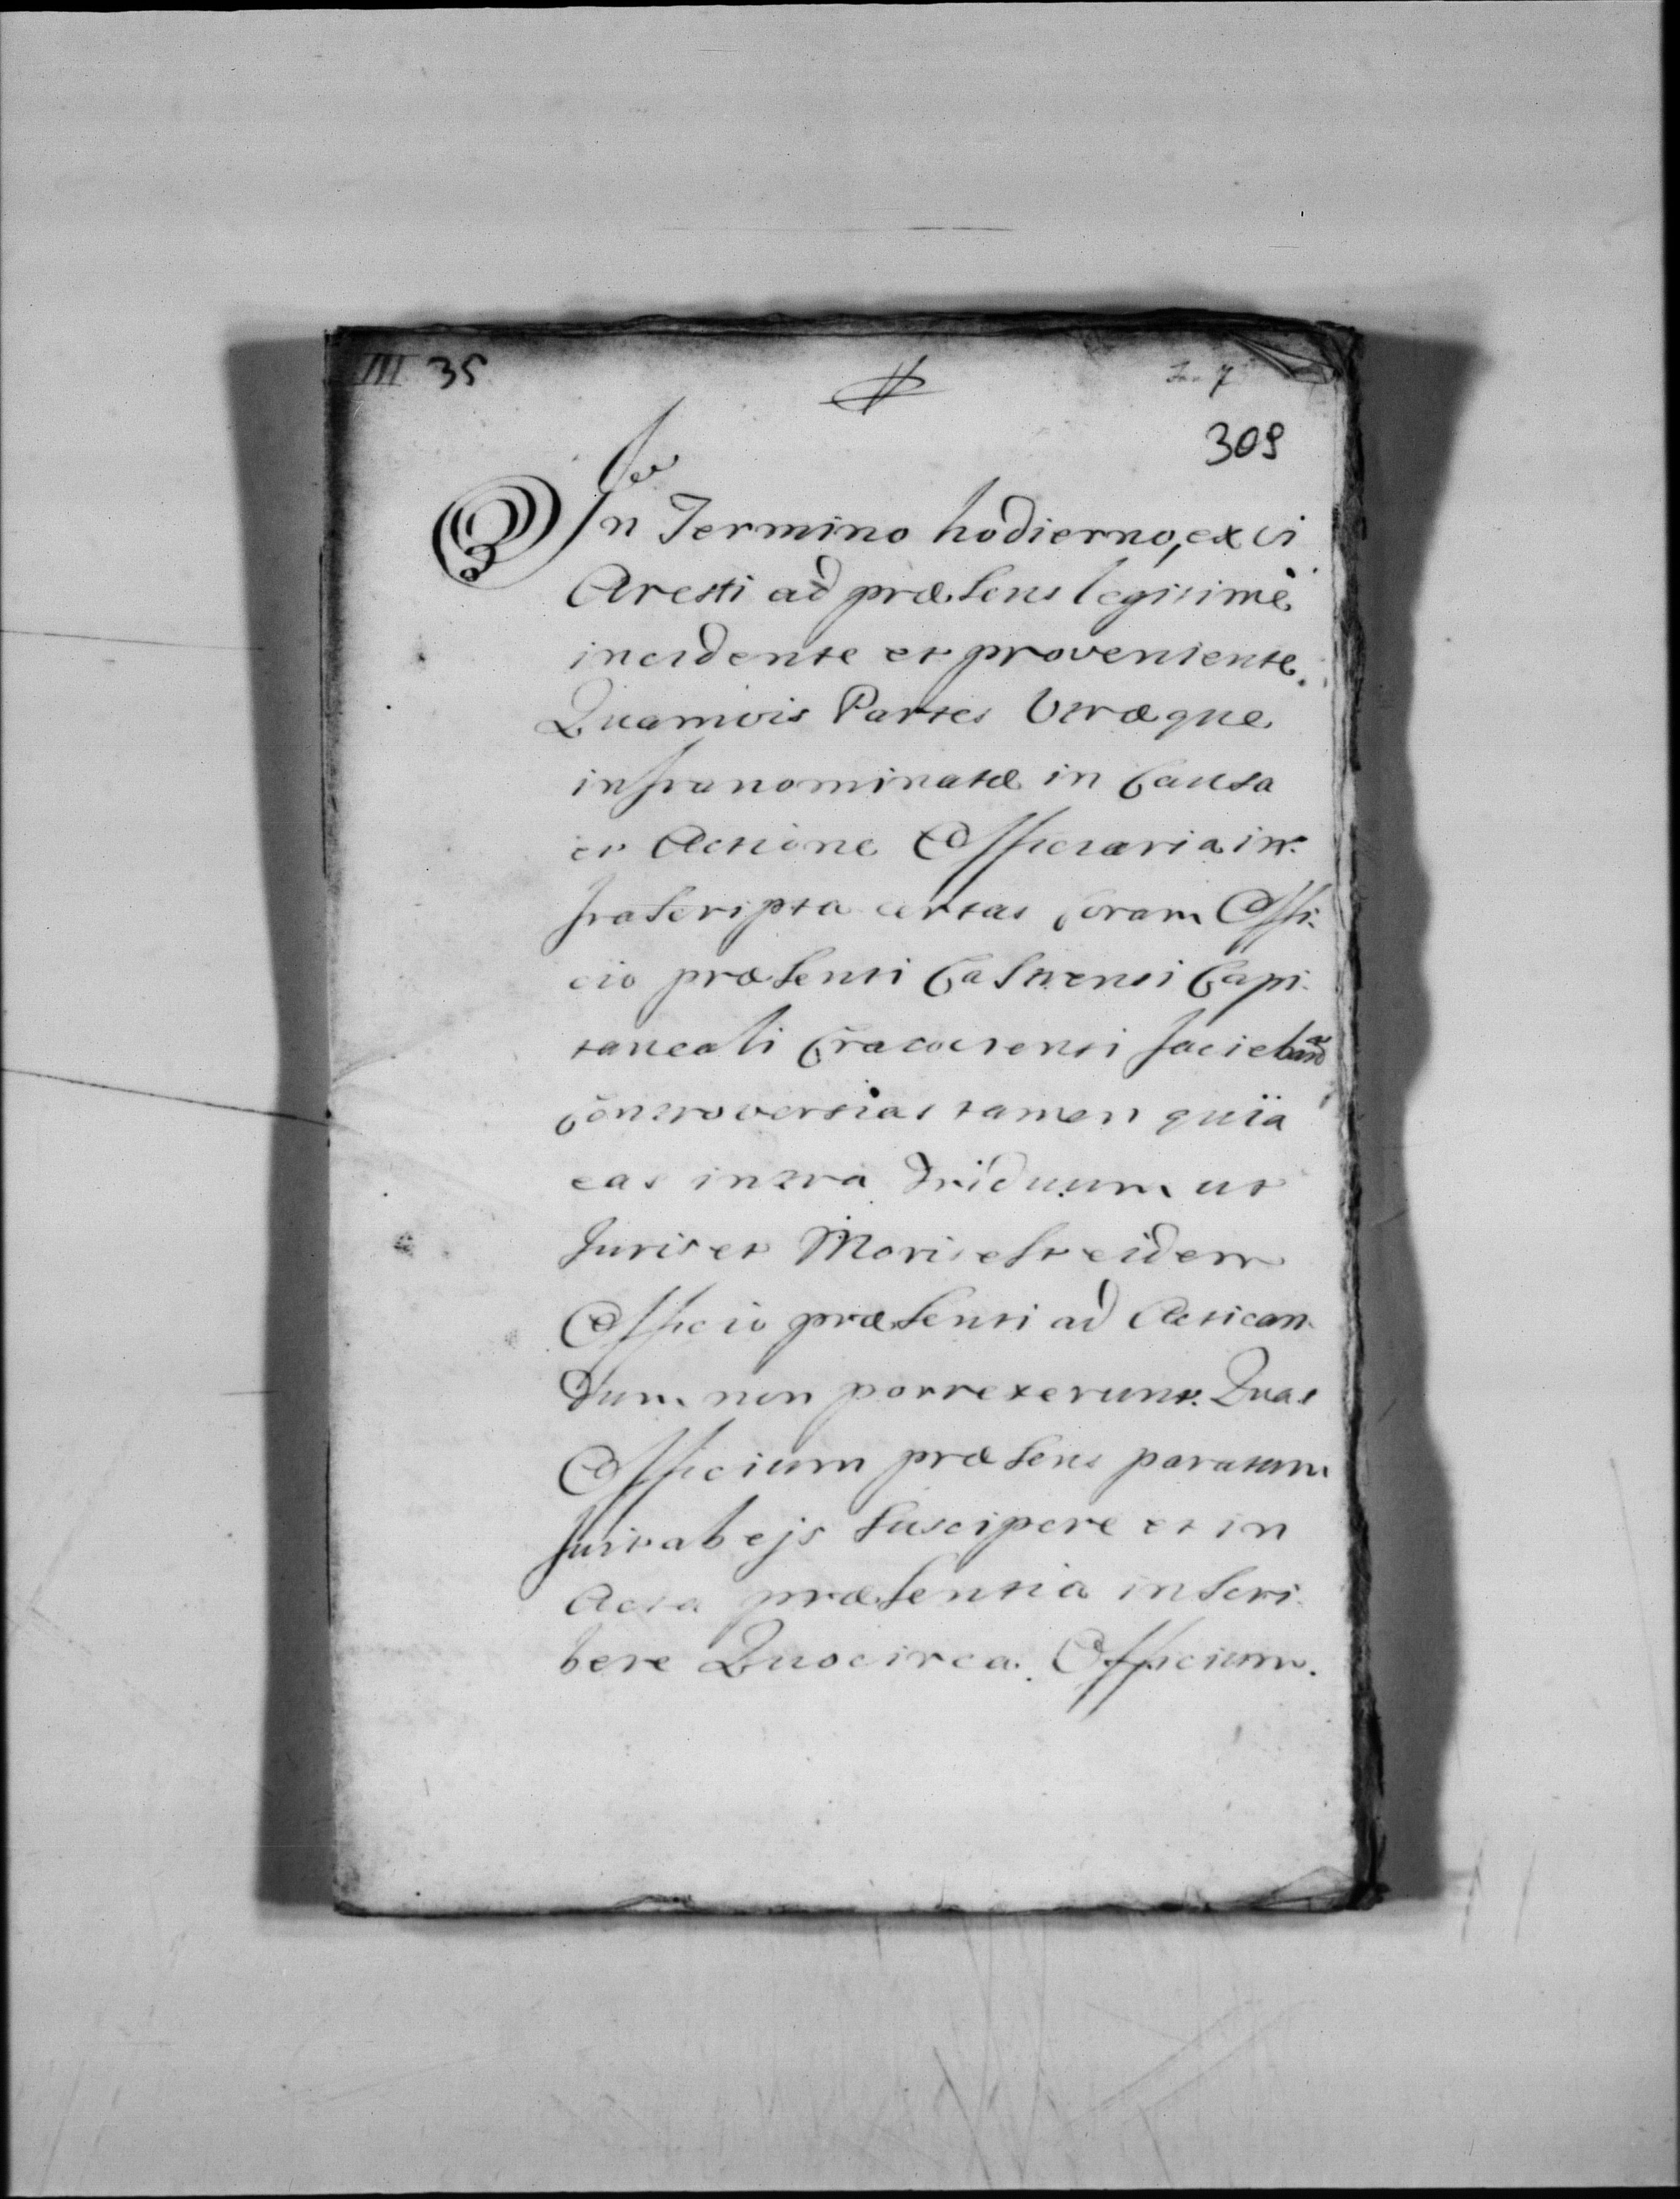 III 35
309
In Termino hodierno, ex vi
Aresti ad præsens legitimè
incidente et proveniente.
Quamvis Partes Utræque
infranominatæ in Causa
et Actione Officiaria in-
frascripta certas coram Offi-
cio præsenti Castrensi Capi-
taneali Cracoviensi faciebant
Controversias tamen quia
eas intra triduum ut
Juris et Moris est eidem
Officio præsenti ad Actican-
dum non porrexerunt. Quas
Officium præsens paratum
fuit ab ejs suscipere et in
Acta præsentia inscri-
bere Quocirca. Officium.